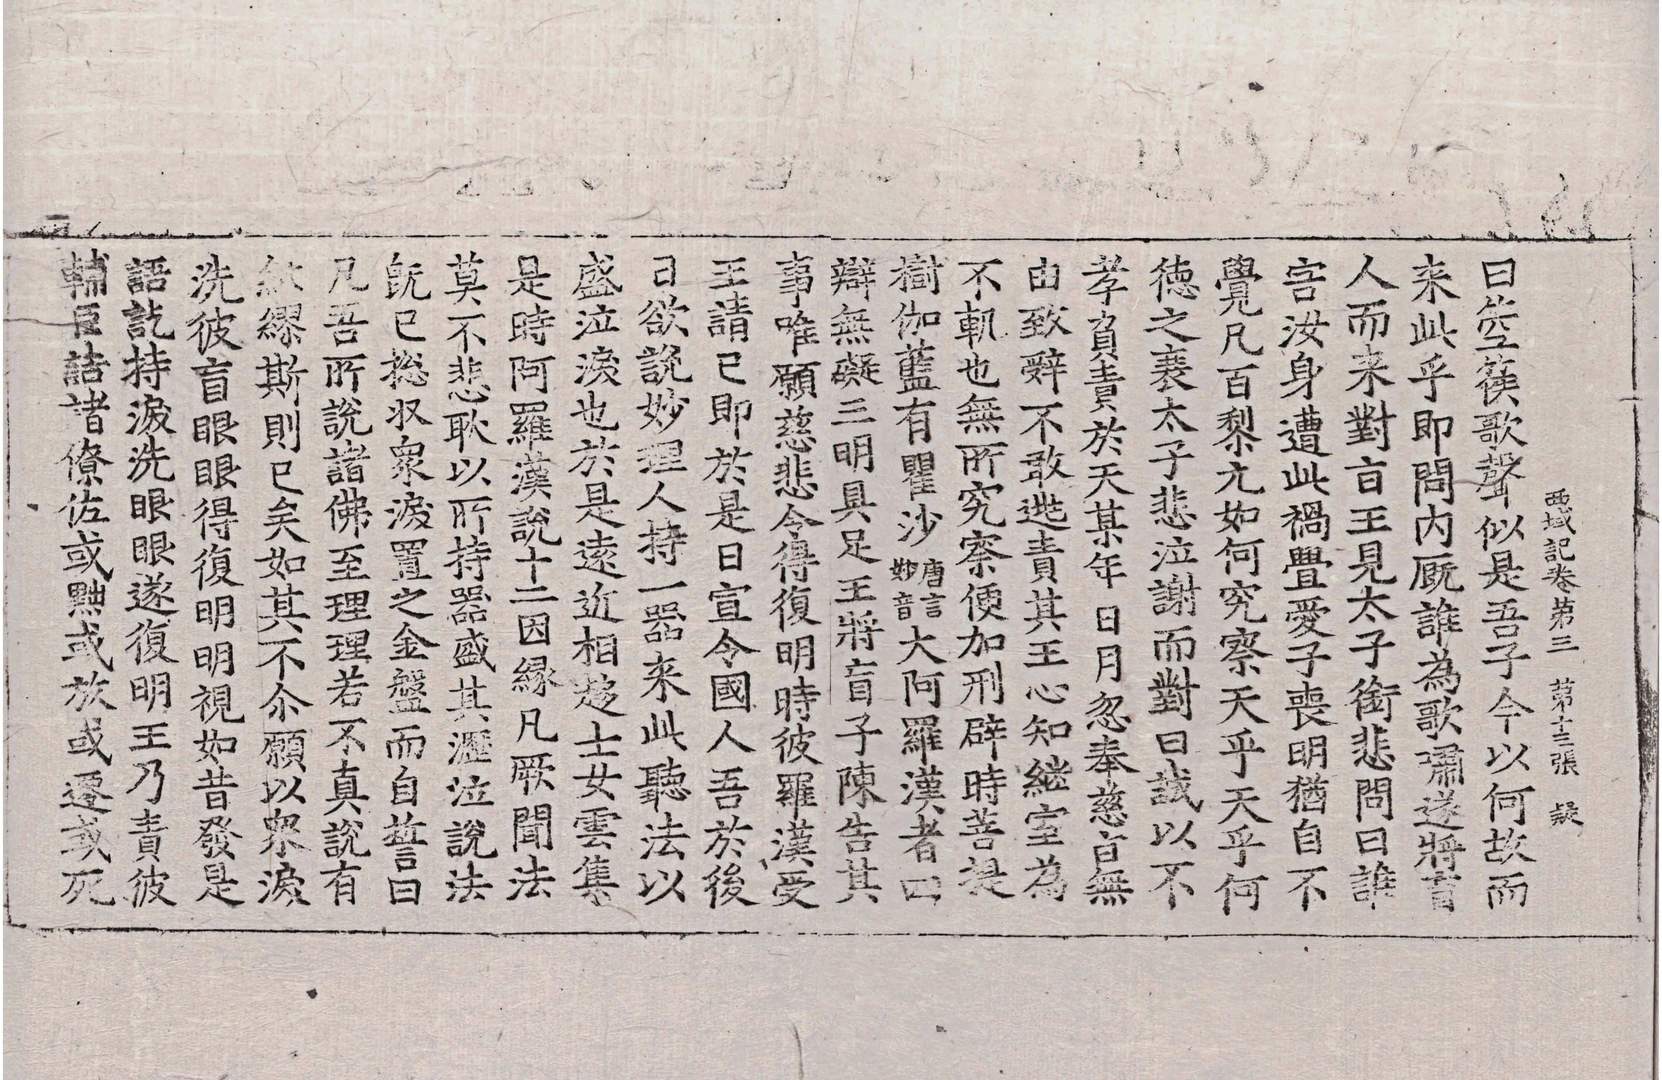 西域記卷第三 第十三張 疑
曰箜篌歌聲似是吾子今以何故而
来此乎即問内厩誰為歌嘯遂將盲
人而来對盲王見太子銜悲問曰誰
害汝身遭此禍舋愛子喪明猶自不
覺凡百黎元如何究察天乎天乎何
德之衰太子悲泣謝而對曰誠以不
孝負責於天某年日月忽奉慈旨無
由致辤不敢逃責其王心知繼室為
不軌也無所究察便加刑辟時菩提
樹伽藍有瞿沙唐言妙音大阿羅漢者四
辯無礙三明具足王將盲子陳告其
事唯願慈悲令得復明時彼羅漢受
王請已即於是日宣令國人吾於後
日欲說妙理人持一器来此聽法以
盛泣淚也於是遠近相趍士女雲集
是時阿羅漢說十二因縁凡厥聞法
莫不悲耿以所持器盛其瀝泣說法
既已捴収衆淚置之金盤而自誓曰
凡吾所說諸佛至理理若不真說有
紕繆斯則已矣如其不尒願以衆淚
洗彼盲眼眼得復明明視如昔發是
語訖持淚洗眼眼遂復明王乃責彼
輔臣詰諸僚佐或黜或放或遷或死